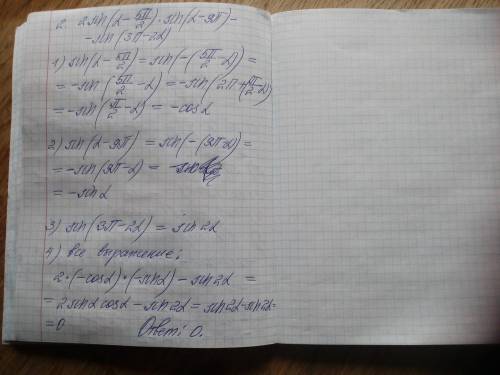 2. 2sin(α - 5π/2) · sin(α - 9π) -
- sin(3π - 2α)
1) sin(α - 5π/2) = sin(-(5π/2 - α)) =
= -sin(5π/2 - α) = -sin(2π + (π/2 - α))
= -sin(π/2 - α) = -cosα
2) sin(α - 9π) = sin(-(9π - α)) =
= -sin(9π - α) =
= -sinα
3) sin(3π - 2α) = sin2α
4) все выражение:
2·(-cosα)·(-sinα) - sin2α =
= 2sinα cosα - sin2α = sin2α - sin2α =
= 0 Ответ: 0.